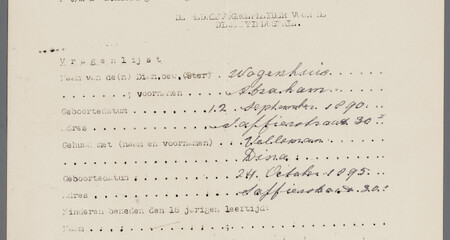 DE
DIAMANTINDUSTRIE.
Vragenlijst
Naam van de(n) Dien.bew.(Ster) Wagenhuis
; voornamen Abraham
Geboortedatum 12 September 1890
Adres Saffierstraat 30
Gehuwd met (naam en voornamen) Velleman
Dina
Geboortedatum 24 October 1895
Adres Saffierstraat 30
Kinderen beneden den 16 jarigen leeftijd:
Naam